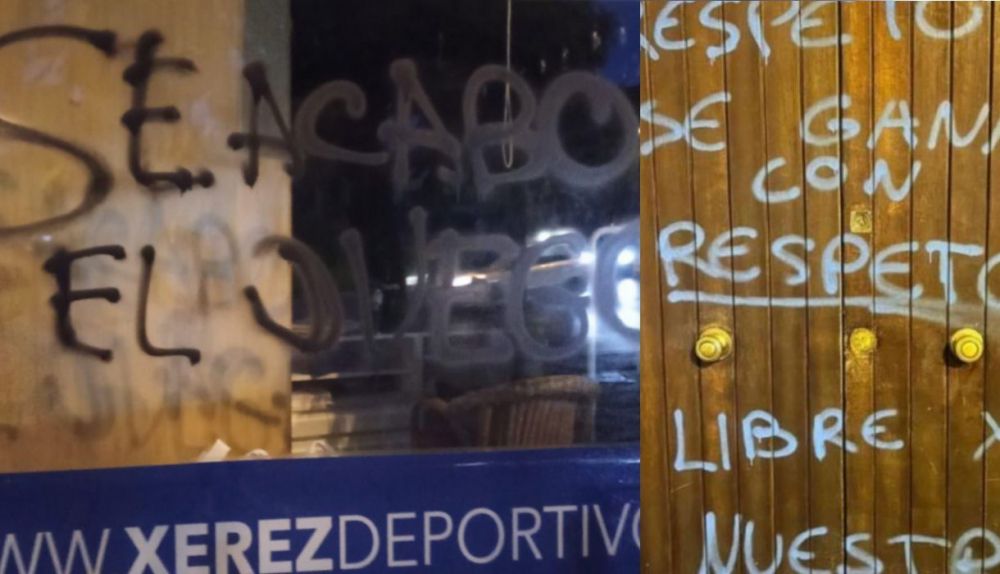 SE ACABO
EL JUEGO
WWW.XEREZDEPORTIVO
RESPETO
SE GANA
CON
RESPETO
LIBRE X
NUESTR